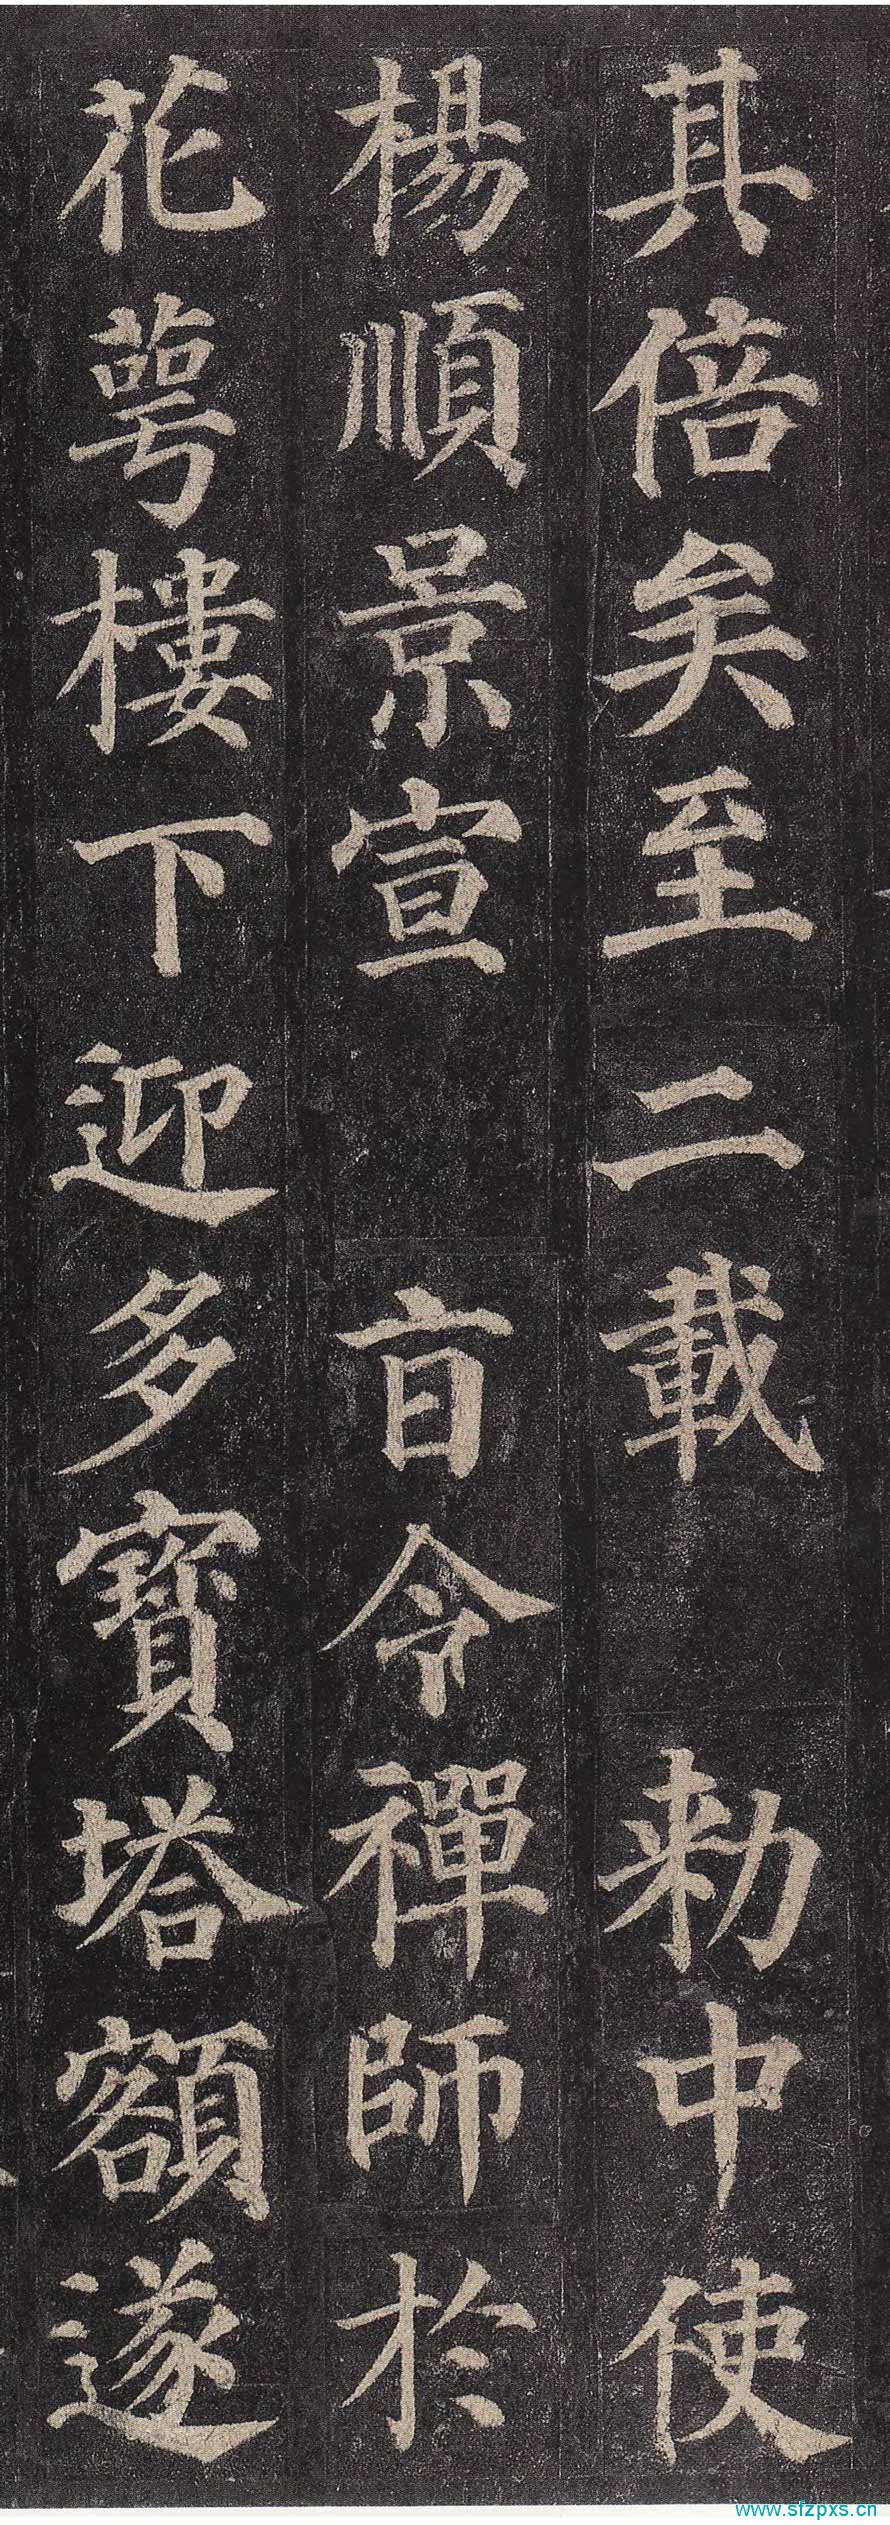 其倍矣至二載 勅中使
楊順景宣 旨令禪師於
花萼樓下迎多寶塔額遂
www.sfzpxs.cn